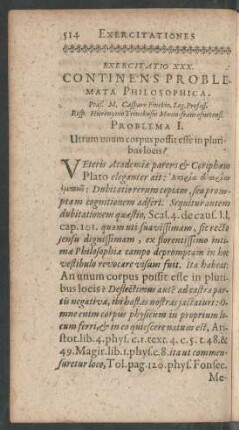 514 EXERCITATIONES
EXERCITATIO XXX.
CONTINENS PROBLE-
MATA PHILOSOPHICA.
Præs. M. Casparo Finckio, Log. Profess.
Resp. Hieronymo Francofurtens.
PROBLEMA I.
Utrum unum corpus possit esse in pluri-
bus locis?
VEteris Academiæ parens & Coriphæus
Plato eleganter ait:
Dubitatio rerum copiam, seu prom-
ptam cognitionem adfert. Sequitur autem
dubitationem quæstio, Scal. 4. de caus. l. l.
cap. 101. quam uti suavissimam, sic recto
sensu dignissimam, ex florentissimo inti-
mæ Philosophiæ campo depromptam in hoc
vestibulo revocare visum fuit. Ita habeat:
An unum corpus possit esse in pluri-
bus locis? Deflectimus autē ad castra par-
tis negativæ, ibi hastas nostras jactaturi: O-
mne enim corpus physicum in proprium lo-
cum ferri & in eo quiescere natum est, Ari-
stot. lib. 4. phys. c. 1. text. 4. c. 5. t. 48. &
49. Magir. lib. 1. phys. c. 8. ita ut commen-
suretur loco, Tol. pag. 120. phys. Fonsec.
Me-